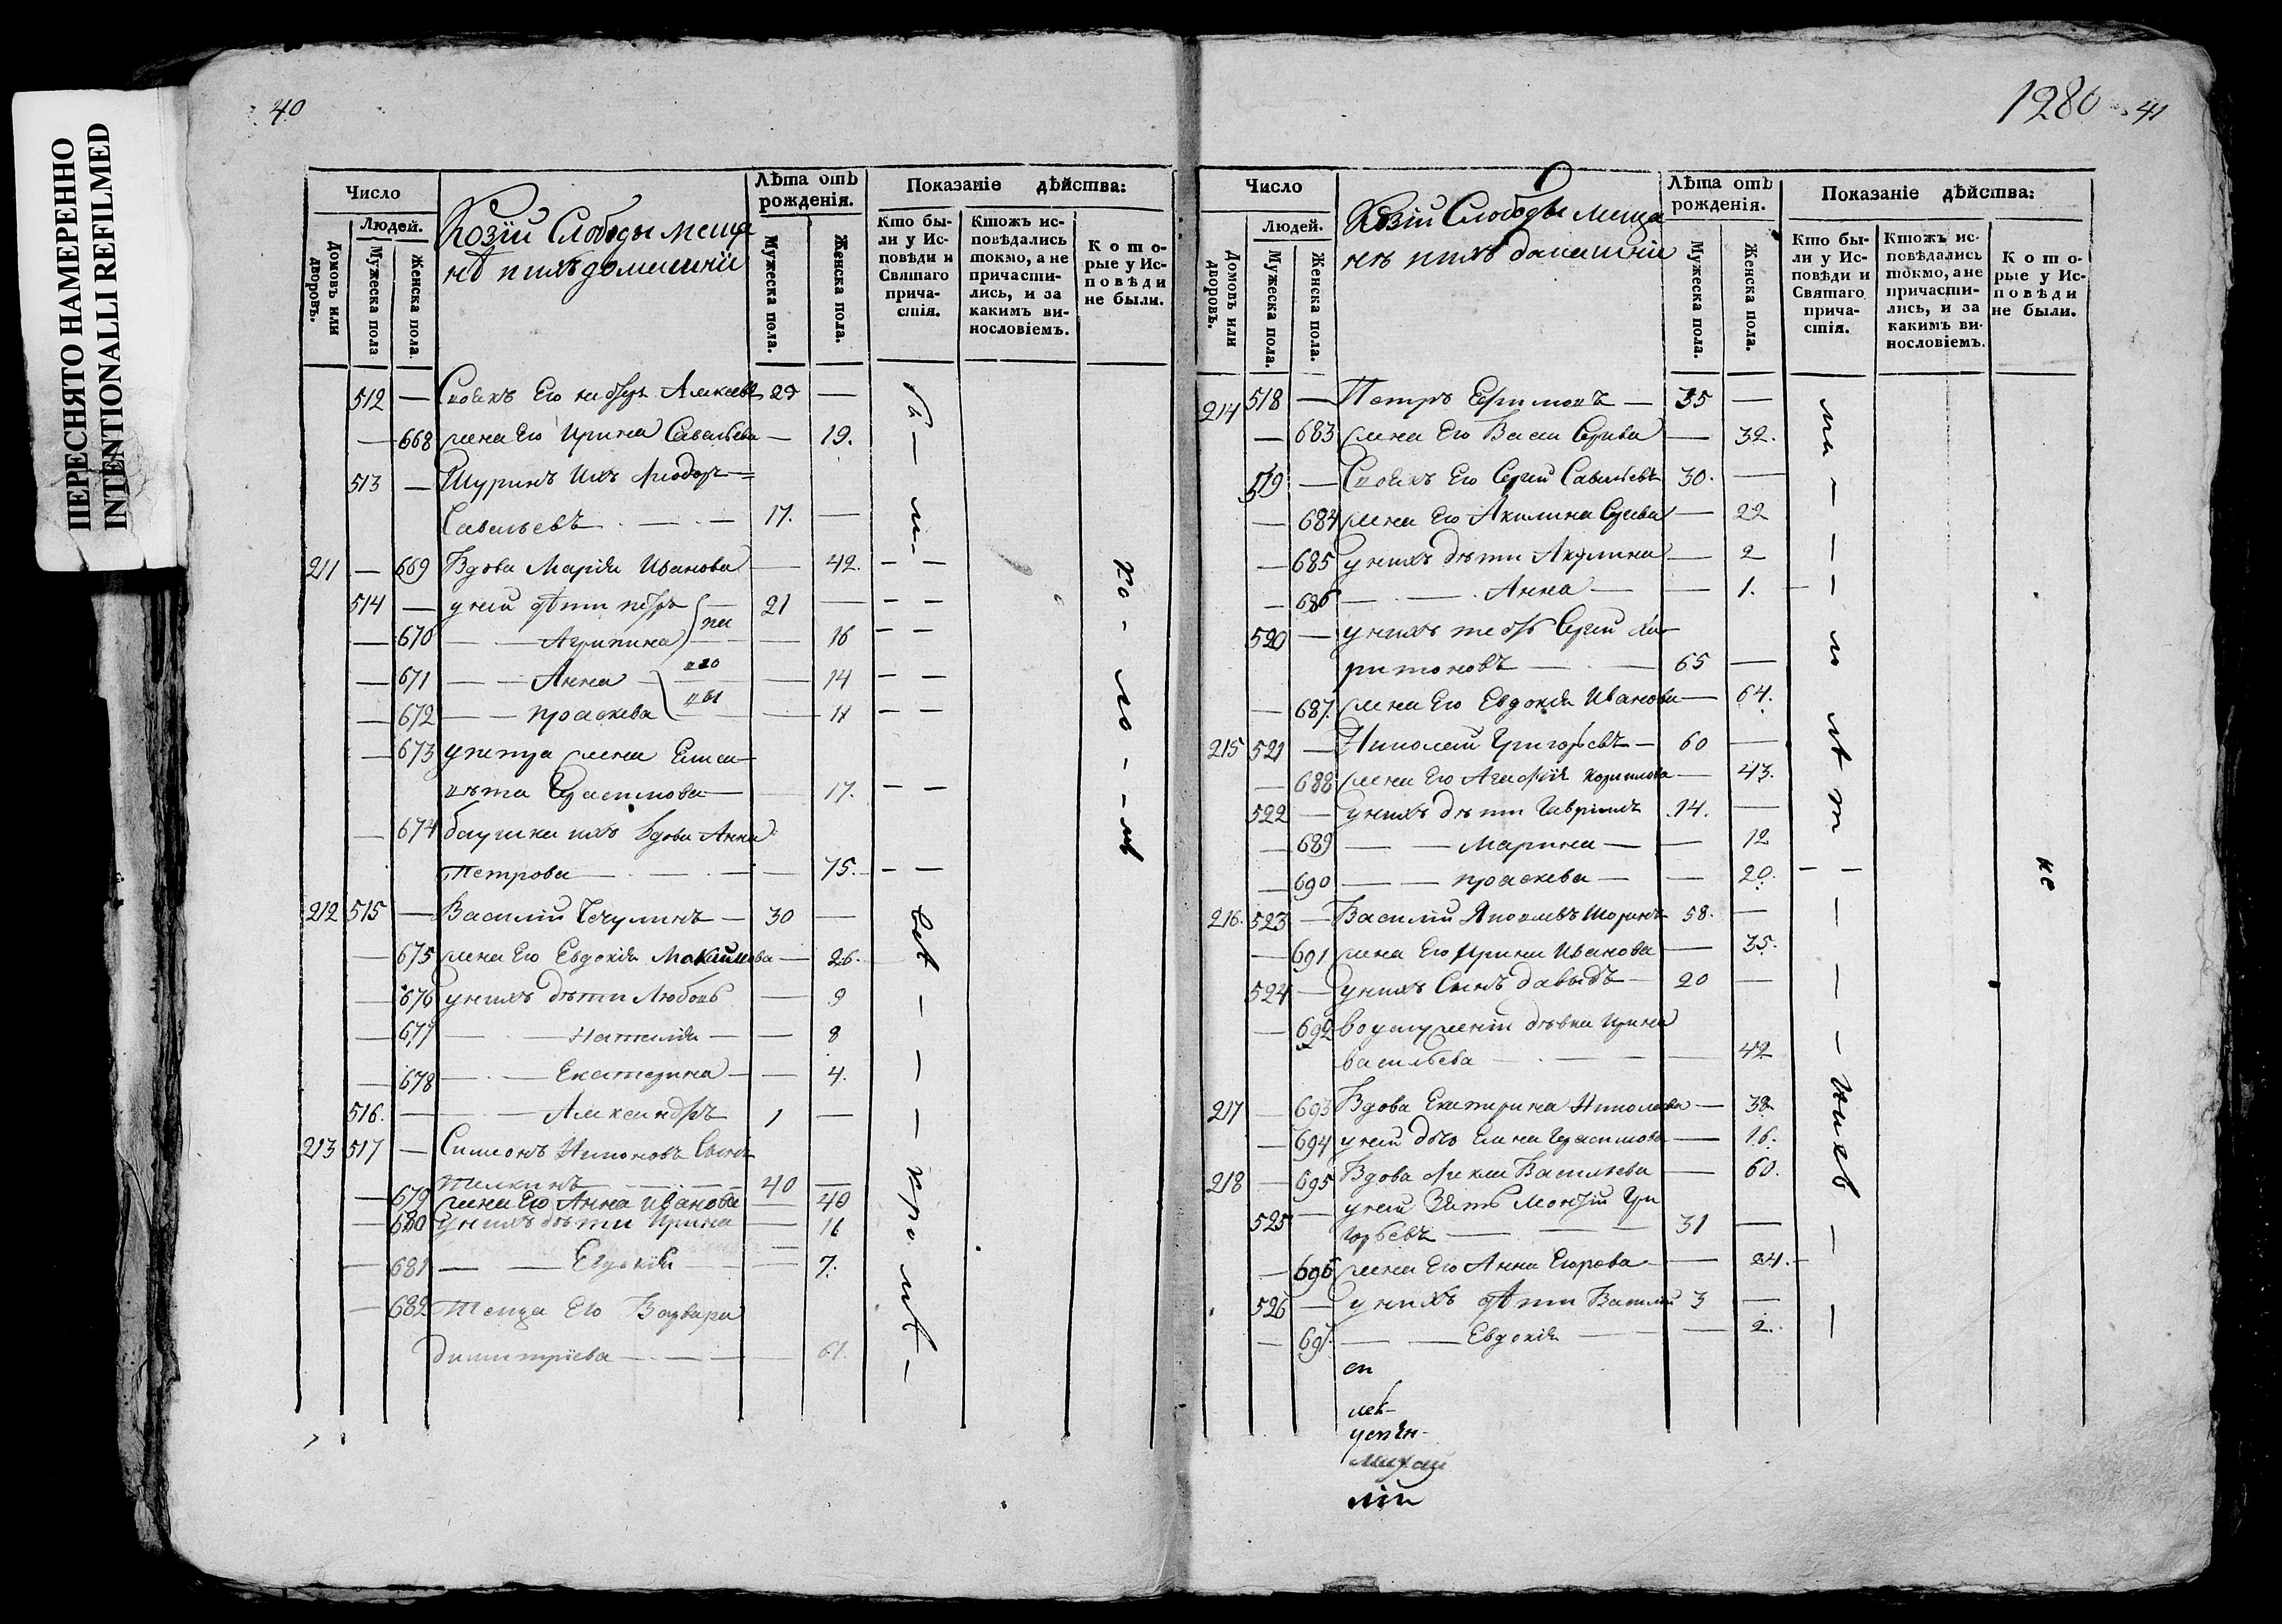 ПЕРЕСНЯТО НАМЕРЕННО
INTENTIONALLI REFILMED
40
Число
Людей.
Домовъ или дворовъ.
Мужеска пола
Женска пола.
Козій Слободы меща
нѣ ихъ домашнїи
Лѣта отъ рожденія.
Мужеска пола.
Женска пола.
Показаніе дѣйства:
Кто бы-
ли у Ис-
повѣди и
Святаго
прича-
стія.
Ктожъ ис-
повѣдались
токмо, а не
причасти-
лись, и за
какимъ ви-
нословіемъ.
Кото-
рые у Ис-
повѣди
не были.
512 — Его Алексѣев 29 —
— 668 жена Его Ирина Савельева — 19.
513 — Шуринъ Ихъ Ѳиодоръ
Савельевъ — 17. —
211 — 669 Вдова Марія Иванова — 42. — —
514 — у ней дѣти петръ — 21 — — —
— 670 — — Агрипина — — 16 — —
— 671 — — Анна — — 14 — —
— 672 — — праскева — — 11 — —
— 673 у петра жена Елиса
вѣта Герасимова — 17. — —
— 674 баушка ихъ вдова Анна
Петрова — — 75. — —
212 515 — Василій — 30 —
— 675 жена Его Евдокія Максимова — 26.
— 676 у нихъ дѣти Любовь — 9
— 677 — — Наталія — — 8
— 678 — — Екатерина — — 4.
516. — — Александръ 1 —
213 517 — Симеонъ Сынъ
40 —
— 679 жена Его Анна Иванова — 40
— 680 у нихъ дѣти Ирина — 16
— 681 — — Евдокія — 7.
— 682 Теща Его Варвара
димитріева — — 61.
1280 41
Число
Людей.
Домовъ или дворовъ.
Мужеска пола.
Женска пола.
Козій Слободы меща
нѣ ихъ домашнїи
Лѣта отъ рожденія.
Мужеска пола.
Женска пола.
Показаніе дѣйства:
Кто бы-
ли у Ис-
повѣди и
Святаго
прича-
стія.
Ктожъ ис-
повѣдались
токмо, а не
причасти-
лись, и за
какимъ ви-
нословіемъ.
Кото-
рые у Ис-
повѣди
не были.
214 518 — Петръ Ефимовъ — 35 —
— 683 жена Его — 32.
519 — Его Сергій Савельевъ 30. —
— 684 жена Его Акилина — 22
— 685 у нихъ дѣти Акулина — 2
— 686 — — Анна — — 1. —
520 — у нихъ Сергій Ха
ритоновъ — 65 —
— 687. жена Его Евдокія Иванова — 64.
215 521 — Николай Григорьевъ — 60 —
— 688 жена Его Агафія — 43.
522 — у нихъ дѣти Гавріилъ 14. —
— 689 — — Марина — — 12
— 690 — — праскева — — 20. — —
216. 523 — Василій Яковлевъ 58. —
— 691 жена Его Ирина Иванова — 35.
524 — у нихъ Сынъ давыдъ — 20 —
— 692 во услуженіи дѣвка Ирина
васильева — — 42
217 — 693 Вдова Екатерина Николаева — 38.
— 694 у ней дочь Елена Герасимова — 16.
218 — 695 Вдова Ѳекла Васильева — 60.
525 — у ней Зять Гри
горьевъ — 31 —
— 696 жена Его Анна Егорова — 24. —
526 — у нихъ дѣти Василій 3 —
— 697. — — Евдокія — — 2.